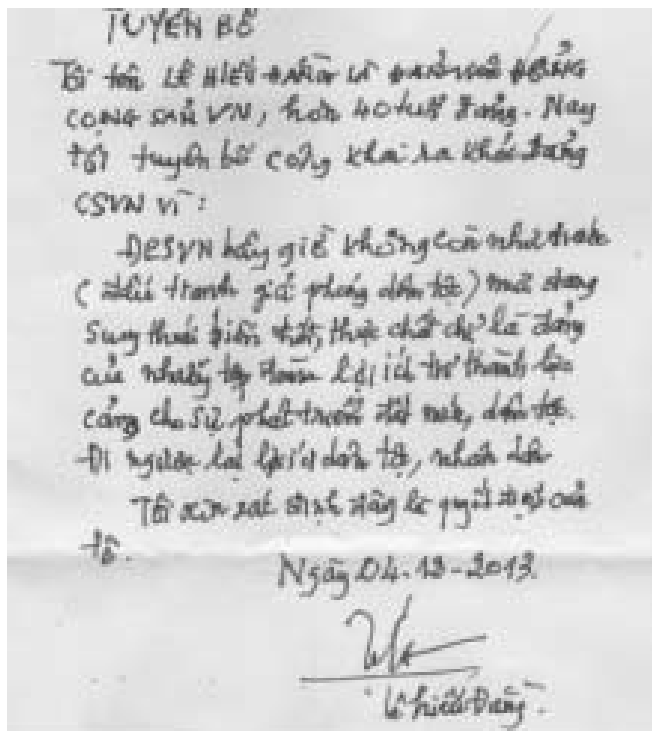 TUYÊN BỐ
Tôi tên LÊ HIẾU ĐẰNG LÀ ĐẢNG VIÊN ĐẢNG
CỘNG SẢN VN, hơn 40 tuổi Đảng. Nay
tôi tuyên bố công khai ra khỏi Đảng
CSVN vì:
ĐCSVN bây giờ không còn như trước
(đấu tranh giải phóng dân tộc) mà đang
suy thoái biến chất, thực chất chỉ là đảng
của những tập đoàn lợi ích trở thành lực
cảng cho sự phát triển đất nước, dân tộc.
Đi ngược lại lợi ích dân tộc, nhân dân
Tôi xin xác định đây là quyết định của
tôi.
Ngày 04-12-2013.
Lê Hiếu Đằng